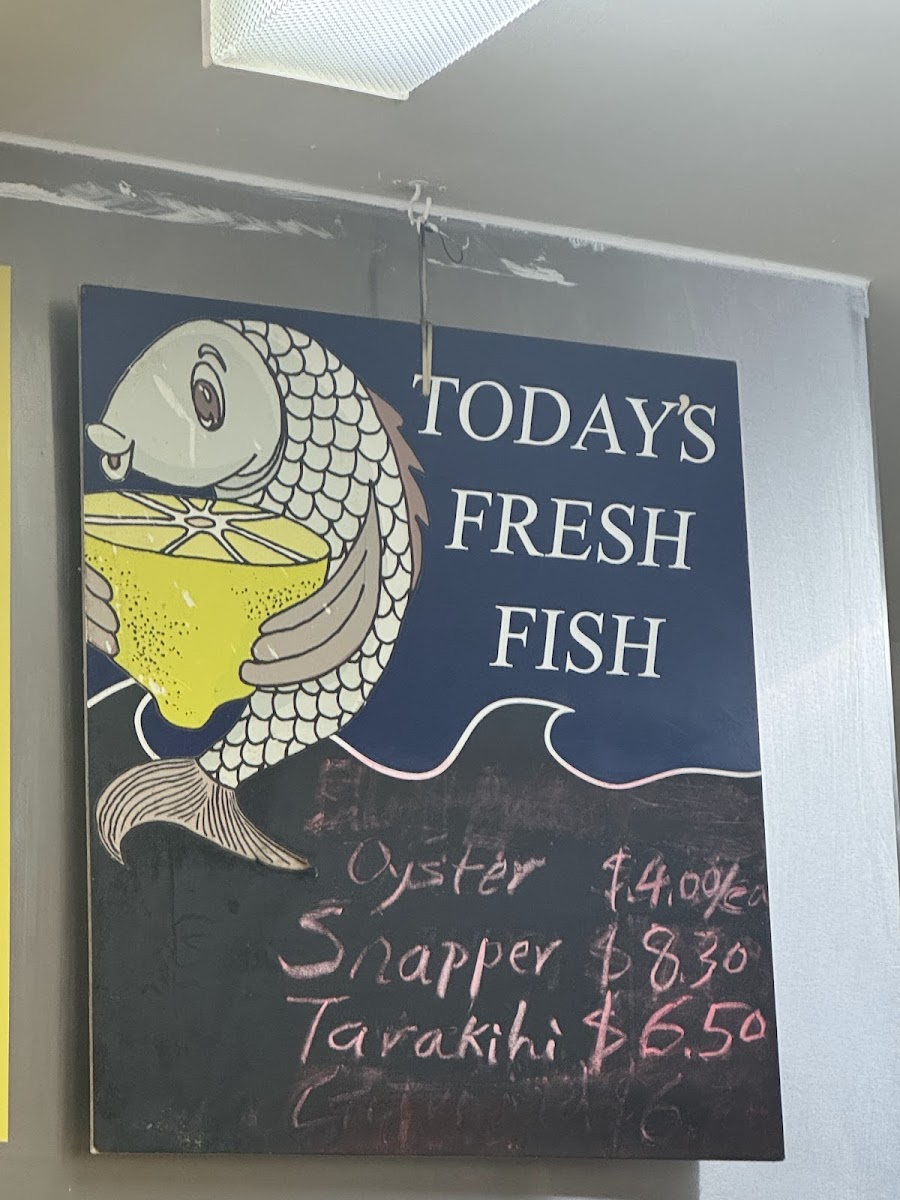 TODAY'S
FRESH
FISH
Oyster $4.00/ea
Snapper $8.30
Tarakihi $6.50